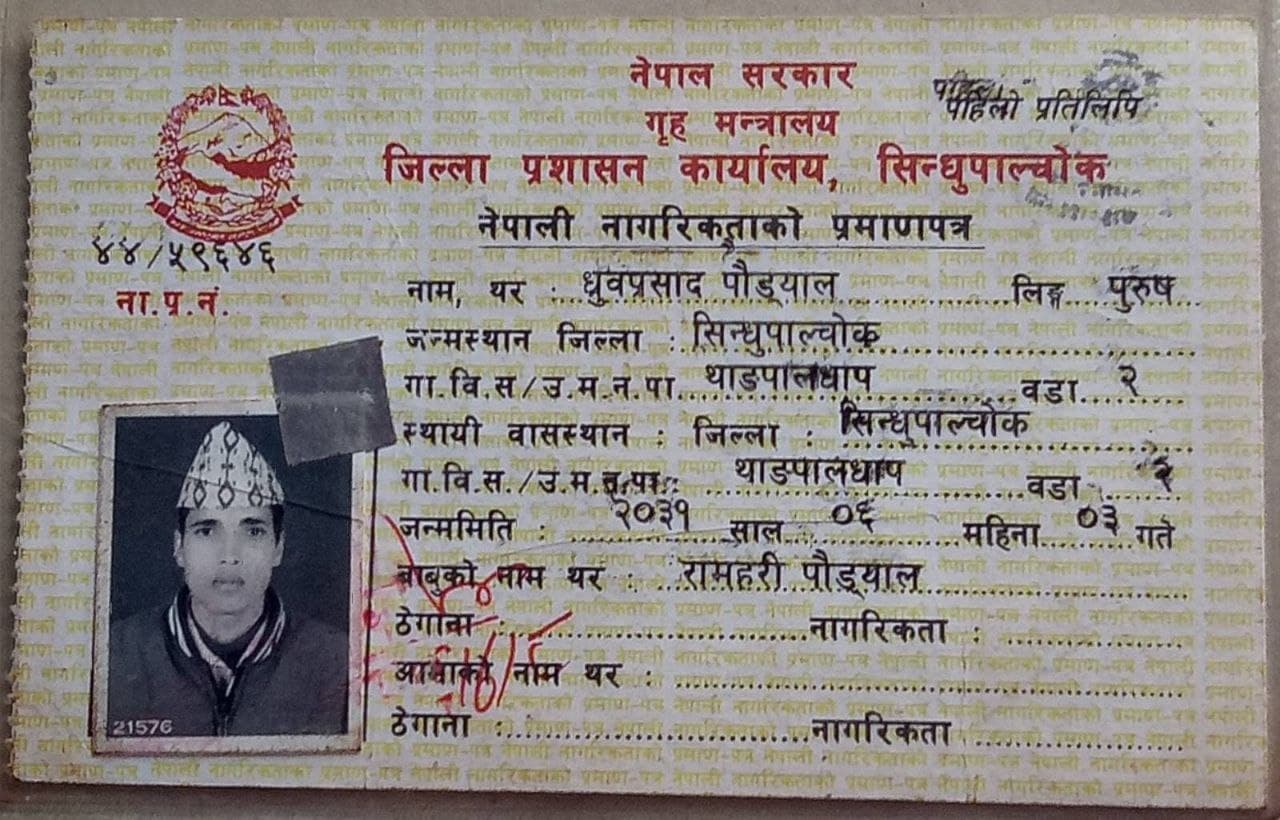 नेपाल सरकार
गृह मन्त्रालय
पहिलो प्रतिलिपि
जिल्ला प्रशासन कार्यालय, सिन्धुपाल्चोक
नेपाली नागरिकताको प्रमाणपत्र
४४/५९६४६
ना.प्र.नं.
नाम, थर : ध्रुवप्रसाद पौड्याल लिङ्ग पुरुष
जन्मस्थान जिल्ला : सिन्धुपाल्चोक
गा.वि.स/उ.म.न.पा. थाडपालधाप वडा २
स्थायी वासस्थान : जिल्ला : सिन्धुपाल्चोक
गा.वि.स./उ.म.न.पा. थाडपालधाप वडा २
जन्ममिति : २०३१ साल ०६ महिना ०३ गते
बाबुको नाम थर : रामहरी पौड्याल
ठेगाना : नागरिकता :
आमाको नाम थर :
ठेगाना : नागरिकता
21576